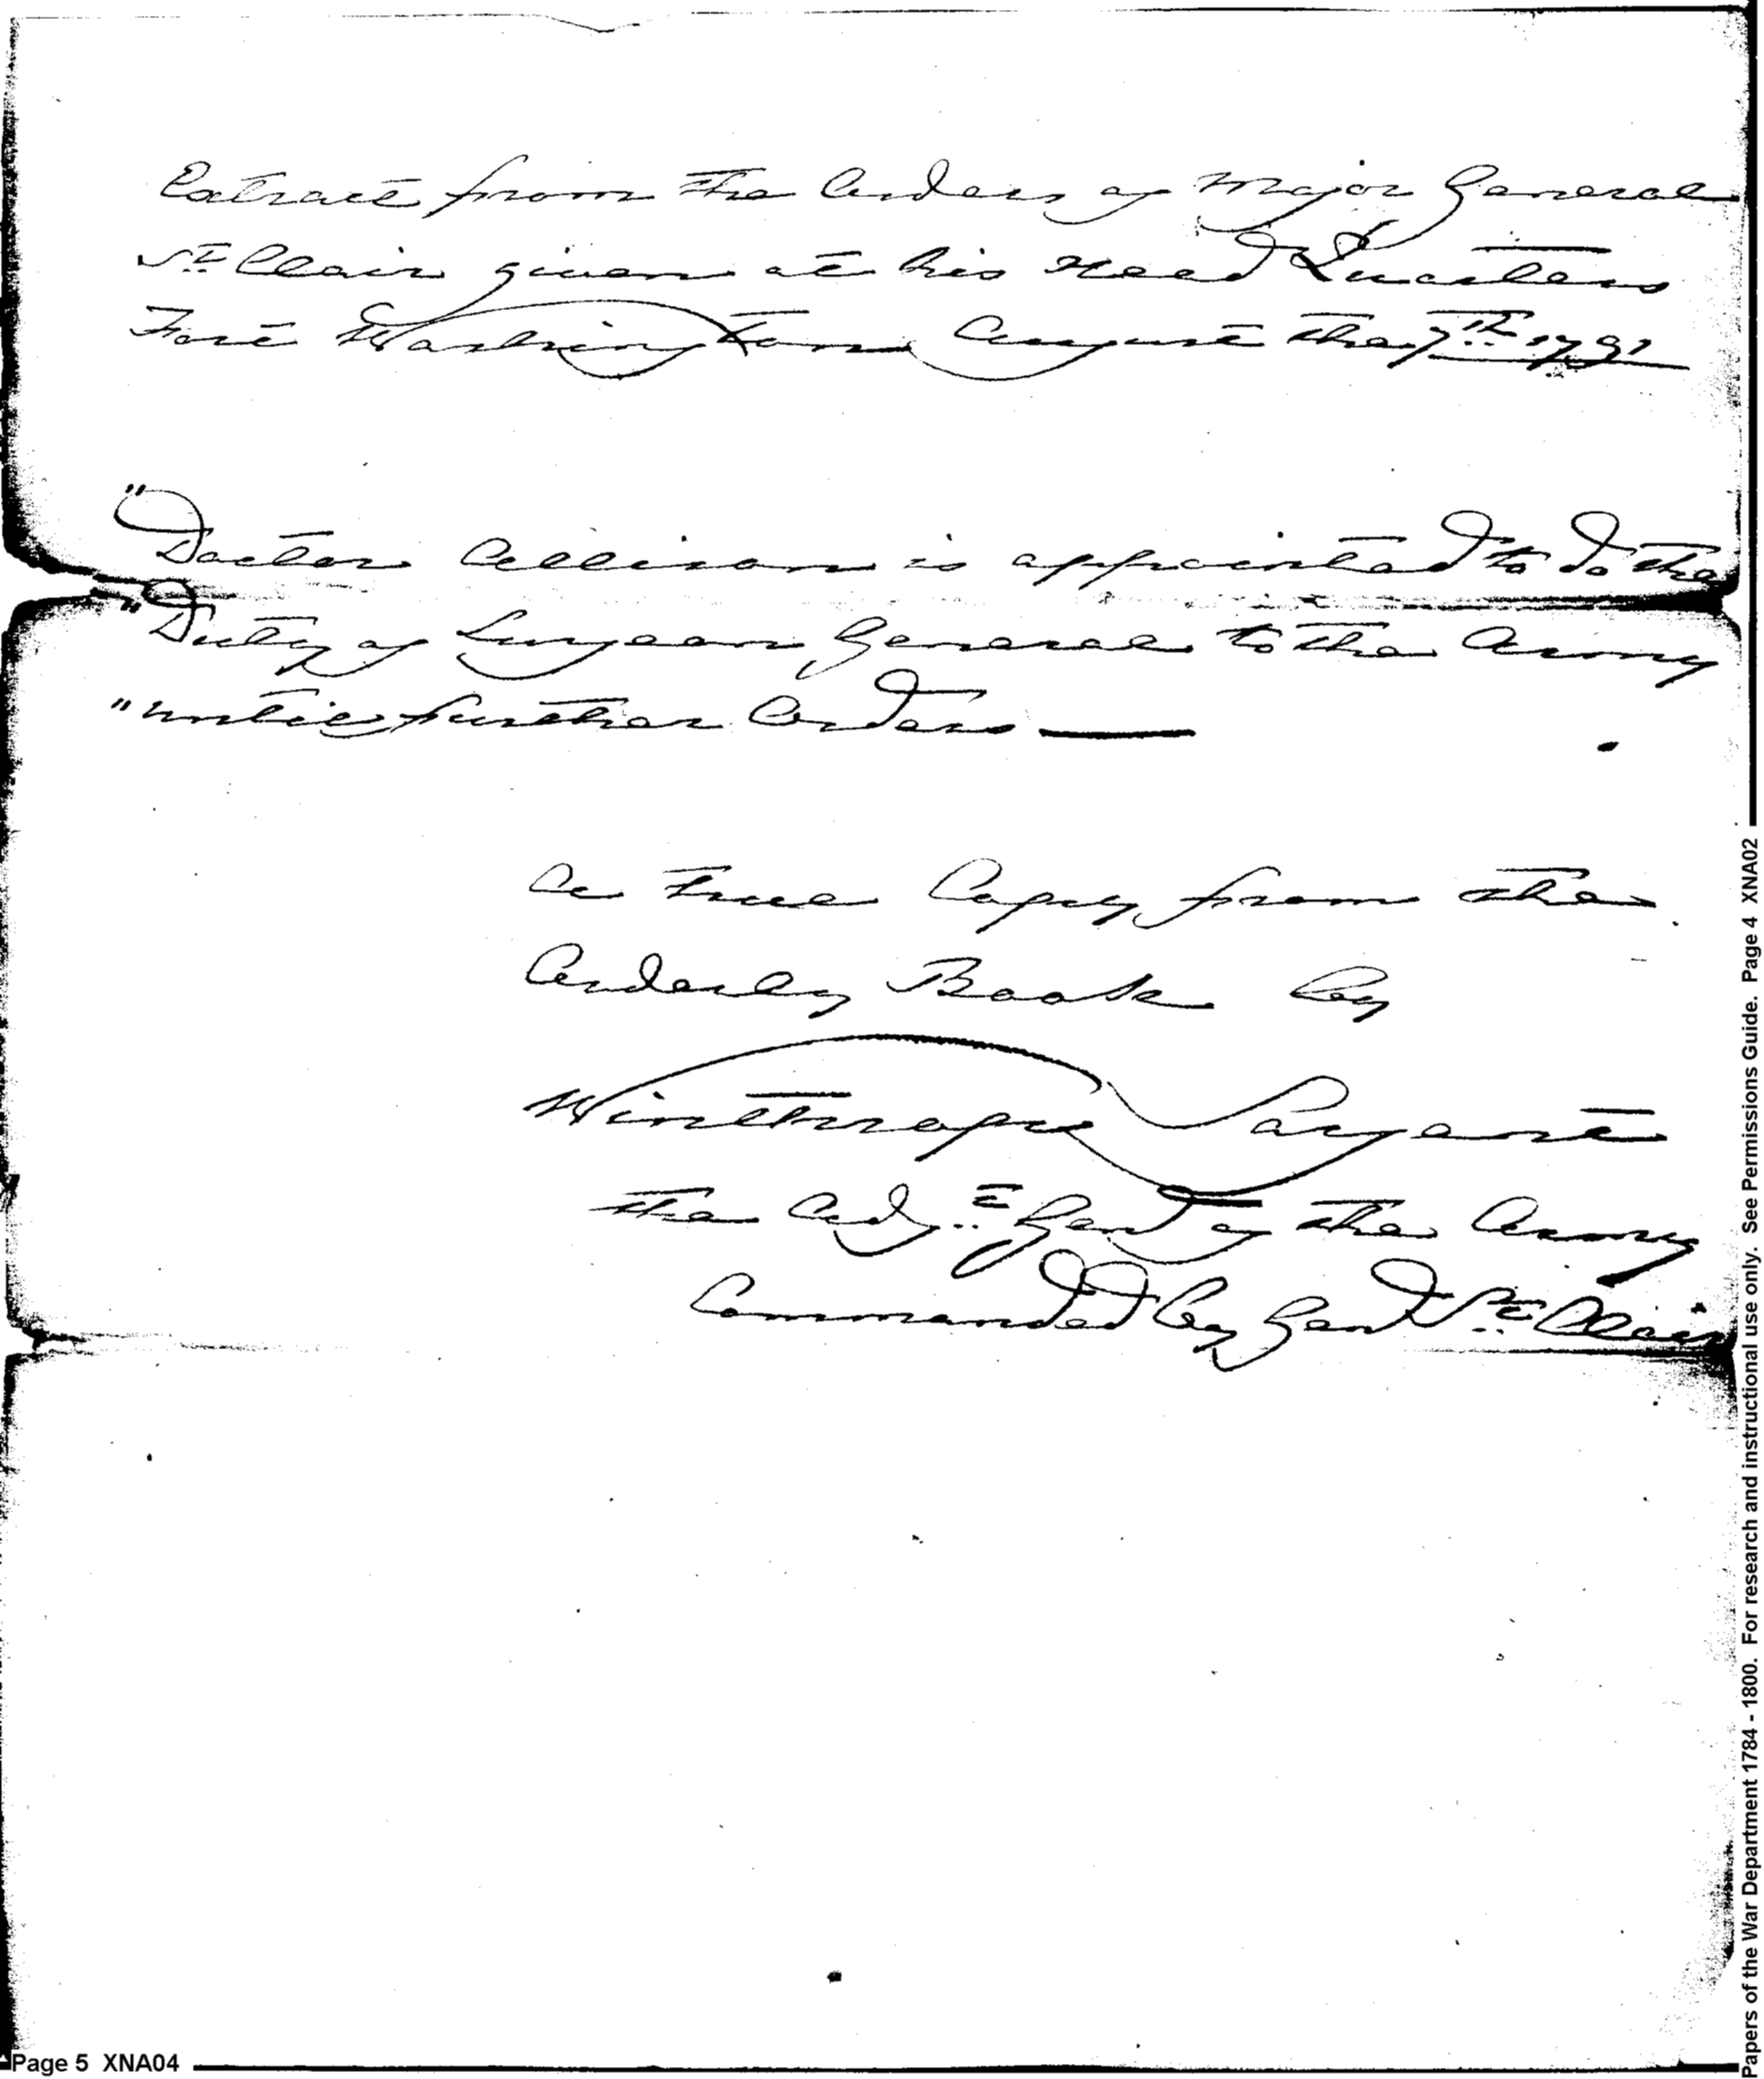 Extract from the Orders of Major General
St. Clair given at his Head Quarters
Fort Washington August the 7th 1791
"Doctor Allison is appointed to do the
"Duty of Surgeon General to the Army
"until further Orders
A true Copy from the
Orderly Book by
Winthrop Sargent
the Adjt. Genl of the Army
Commanded by Genl St. Clair
Page 5 XNA04
Papers of the War Department 1784 - 1800. For research and instructional use only. See Permissions Guide. Page 4 XNA02